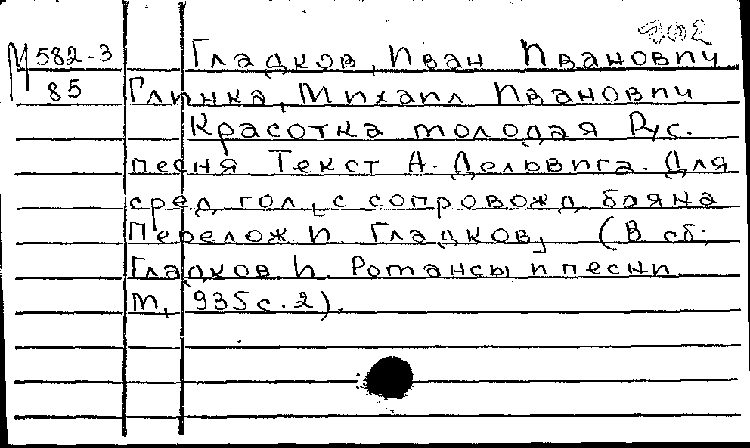 М 582-3 Гладков, Иван Иванович
85 Глинка, Михаил Иванович
Красотка молодая Рус.
песня Текст А. Дельвига. Для
сред, гол, с сопровожд баяна
Перелож И. Гладков, (В сб.
Гладков И. Романсы и песни
М, 935 с. 2).